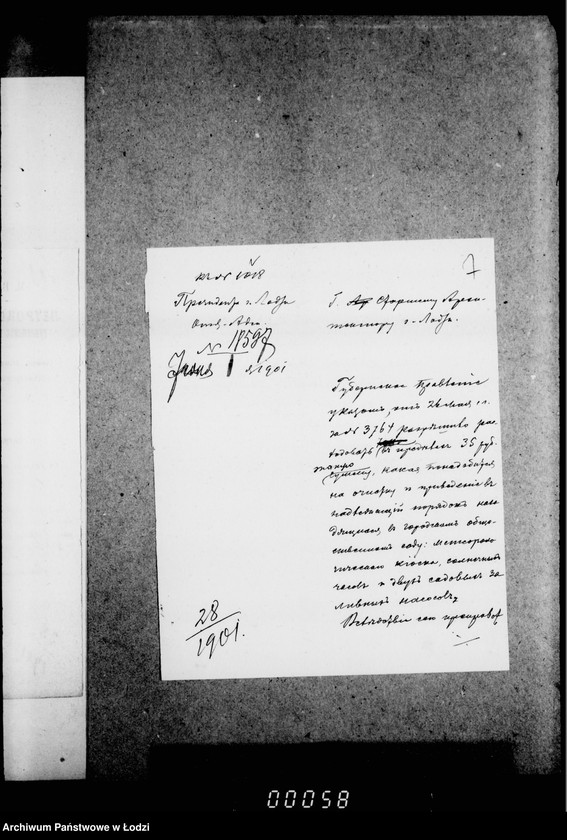 7
Президентъ г. Лодзи
№ 18597
Іюня 1901
Г. Старшему Архи-
тектору г. Лодзи.
Губернское Правленіе
указомъ, отъ 26 мая с. г.
за № 3764 разрѣшило рас-
ходовать въ предѣлѣ 35 руб.
такую
сумму, какая понадобится
на очистку и приведеніе въ
надлежащій порядокъ нахо-
дящихся, въ городскомъ обще-
ственномъ саду: метеороло-
гическаго кіоска, солнечныхъ
часовъ и двухъ садовыхъ за
ливныхъ насосовъ,
Вслѣдствіе сего
28
1901.
00058
Archiwum Państwowe w Łodzi